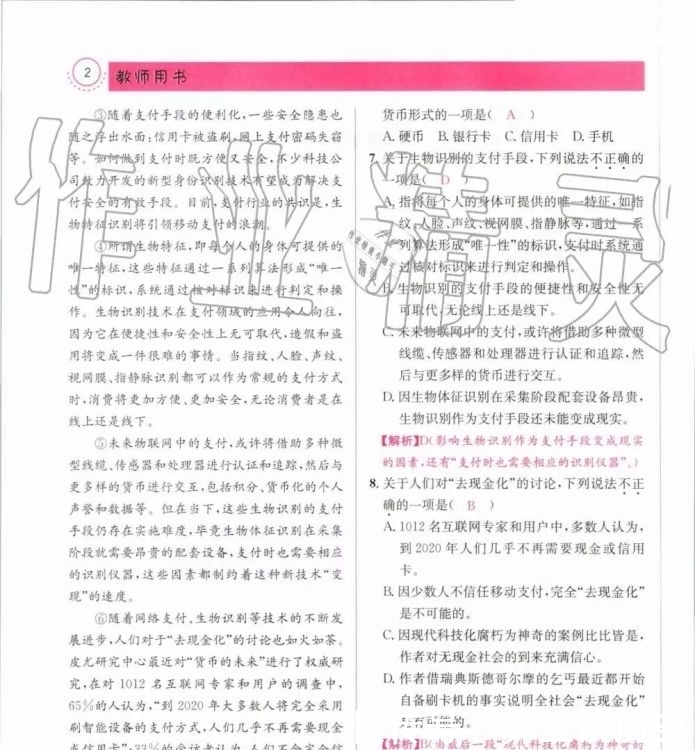 2
教师用书
③随着支付手段的便利化，一些安全隐患也
随之浮出水面：信用卡被盗刷、网上支付密码失窃
等。如何做到支付时既方便又安全，不少科技公
司致力开发的新型身份识别技术有望成为解决支
付安全的有效手段。目前，支付行业的共识是，生
物特征识别将引领移动支付的浪潮。
④所谓生物特征，即每个人的身体可提供的
唯一特征，这些特征通过一系列算法形成“唯一
性”的标识，系统通过核对标识来进行判定和操
作。生物识别技术在支付领域的应用令人向往，
因为它在便捷性和安全性上无可取代，造假和盗
用将变成一件很难的事情。当指纹、人脸、声纹、
视网膜、指静脉识别都可以作为常规的支付方式
时，消费将更加方便、更加安全，无论消费者是在
线上还是线下。
⑤未来物联网中的支付，或许将借助多种微
型线缆、传感器和处理器进行认证和追踪，然后与
更多样的货币进行交互，包括积分、货币化的个人
声誉和数据等。但在当下，这些生物识别的支付
手段仍存在实施难度，毕竟生物体征识别在采集
阶段就需要昂贵的配套设备，支付时也需要相应
的识别仪器，这些因素都制约着这种新技术“变
现”的速度。
⑥随着网络支付、生物识别等技术的不断发
展进步，人们对于“去现金化”的讨论也如火如荼。
皮尤研究中心最近对“货币的未来”进行了权威研
究，在对 1012 名互联网专家和用户的调查中，
65%的人认为，“到 2020 年大多数人将完全采用
刷智能设备的支付方式，人们几乎不再需要现金
或信用卡”；33%的受访者认为，人们不会完全信
货币形式的一项是（ A ）
A. 硬币 B. 银行卡 C. 信用卡 D. 手机
7. 关于生物识别的支付手段，下列说法不正确的
一项是（ D ）
A. 指将每个人的身体可提供的唯一特征，如指
纹、人脸、声纹、视网膜、指静脉等，通过一系
列算法形成“唯一性”的标识，支付时系统通
过核对标识来进行判定和操作。
B. 生物识别的支付手段的便捷性和安全性无
可取代，无论线上还是线下。
C. 未来物联网中的支付，或许将借助多种微型
线缆、传感器和处理器进行认证和追踪，然
后与更多样的货币进行交互。
D. 因生物体征识别在采集阶段配套设备昂贵，
生物识别作为支付手段还未能变成现实。
【解析】D（影响生物识别作为支付手段变成现实
的因素，还有“支付时也需要相应的识别仪器”。）
8. 关于人们对“去现金化”的讨论，下列说法不正
确的一项是（ B ）
A. 1012 名互联网专家和用户中，多数人认为，
到 2020 年人们几乎不再需要现金或信用
卡。
B. 因少数人不信任移动支付，完全“去现金化”
是不可能的。
C. 因现代科技化腐朽为神奇的案例比比皆是，
作者对无现金社会的到来充满信心。
D. 作者借瑞典斯德哥尔摩的乞丐最近都开始
自备刷卡机的事实说明全社会“去现金化”
是有可能的。
【解析】B（由最后一段“现代科技化腐朽为神奇的
作业精灵